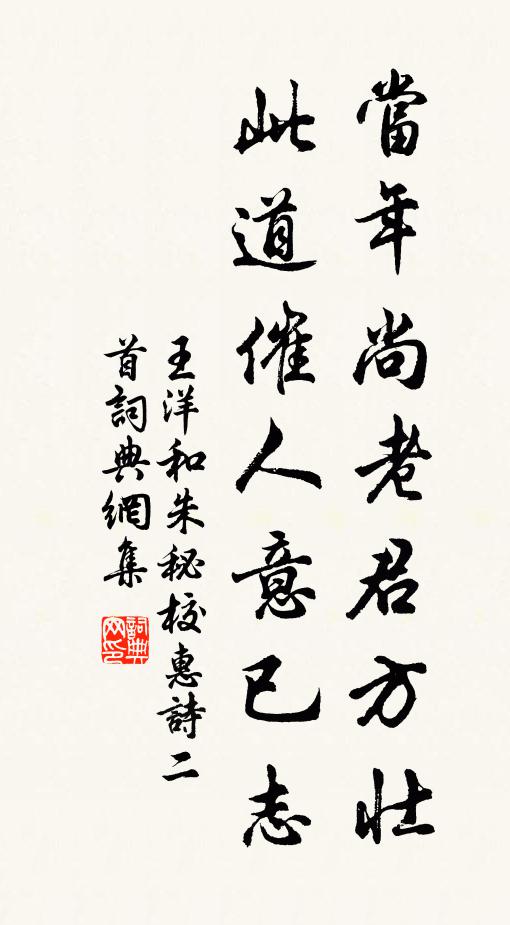 當年尚老君方壯
此道催人意已志
王洋和朱秘校惠詩二
首詞典網集
詞典网印